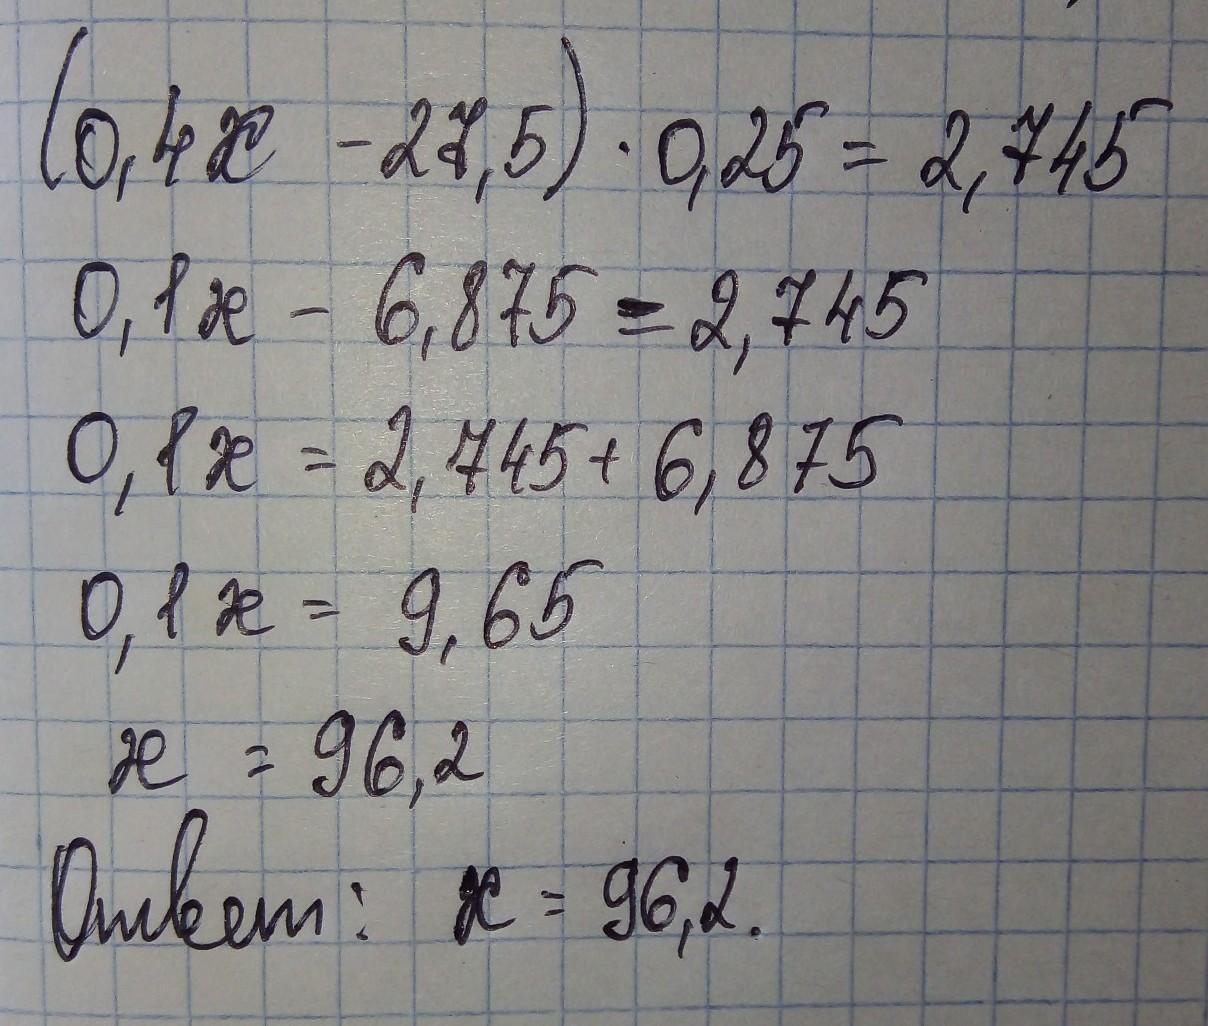 (0,4x - 27,5) · 0,25 = 2,745
0,1x - 6,875 = 2,745
0,1x = 2,745 + 6,875
0,1x = 9,65
x = 96,2
Ответ: x = 96,2.